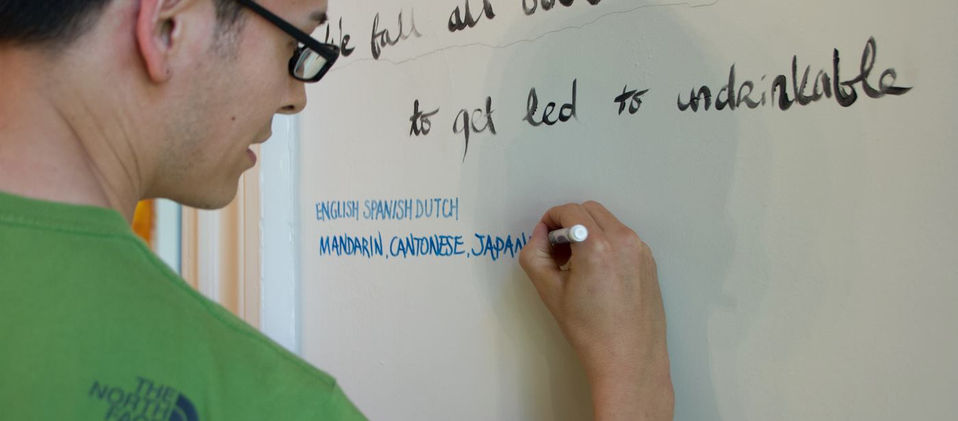 fall all
to get led to undrinkable
ENGLISH SPANISH DUTCH
MANDARIN, CANTONESE, JAPAN
THE
NORTH
FACE